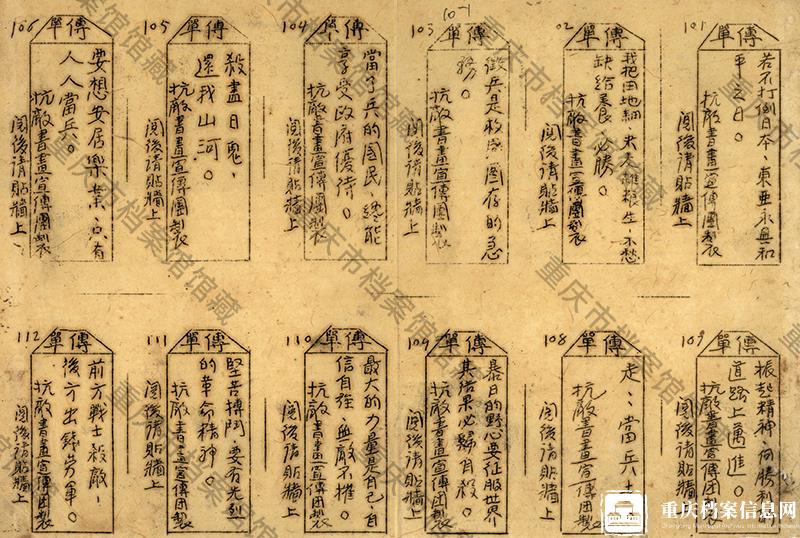 101
傳單
若不打倒日本、東亜永無和
平之日。
抗敵書畫宣傳團製
閱後請貼牆上
02
傳單
我把田地細
缺給養、必勝。
抗敵書畫宣傳團製
閱後請貼牆上
103
傳單
徵兵是救國圖存的急
務。
抗敵書畫宣傳團製
閱後請貼牆上
104
傳單
當了兵的國民總能
享受政府優待。
抗敵書畫宣傳團製
閱後請貼牆上
105
傳單
殺盡日鬼、
還我山河。
抗敵書畫宣傳團製
閱後請貼牆上
106
傳單
要想安居樂業、只有
人人當兵。
抗敵書畫宣傳團製
閱後請貼牆上
傳單
振起精神、向勝利
道路上邁進。
抗敵書畫宣傳团製
閱後請貼牆上
108
傳單
走、、當兵去
抗敵書畫宣傳团製
閱後請貼牆上
傳單
暴日的野心要征服世界
其結果必歸自殺。
抗敵書畫宣傳团製
閱後請貼牆上
110
傳單
最大的力量是自己、自
信自強、無敵不摧。
抗敵書畫宣傳团製
閱後請貼牆上
111
傳單
堅苦搏鬥、要有光烈
的革命精神。
抗敵書畫宣傳团製
閱後請貼牆上
112
傳單
前方戰士殺敵、
後方出錢劳軍。
抗敵書畫宣傳团製
閱後請貼牆上
重庆市档案馆馆藏
重庆档案信息网